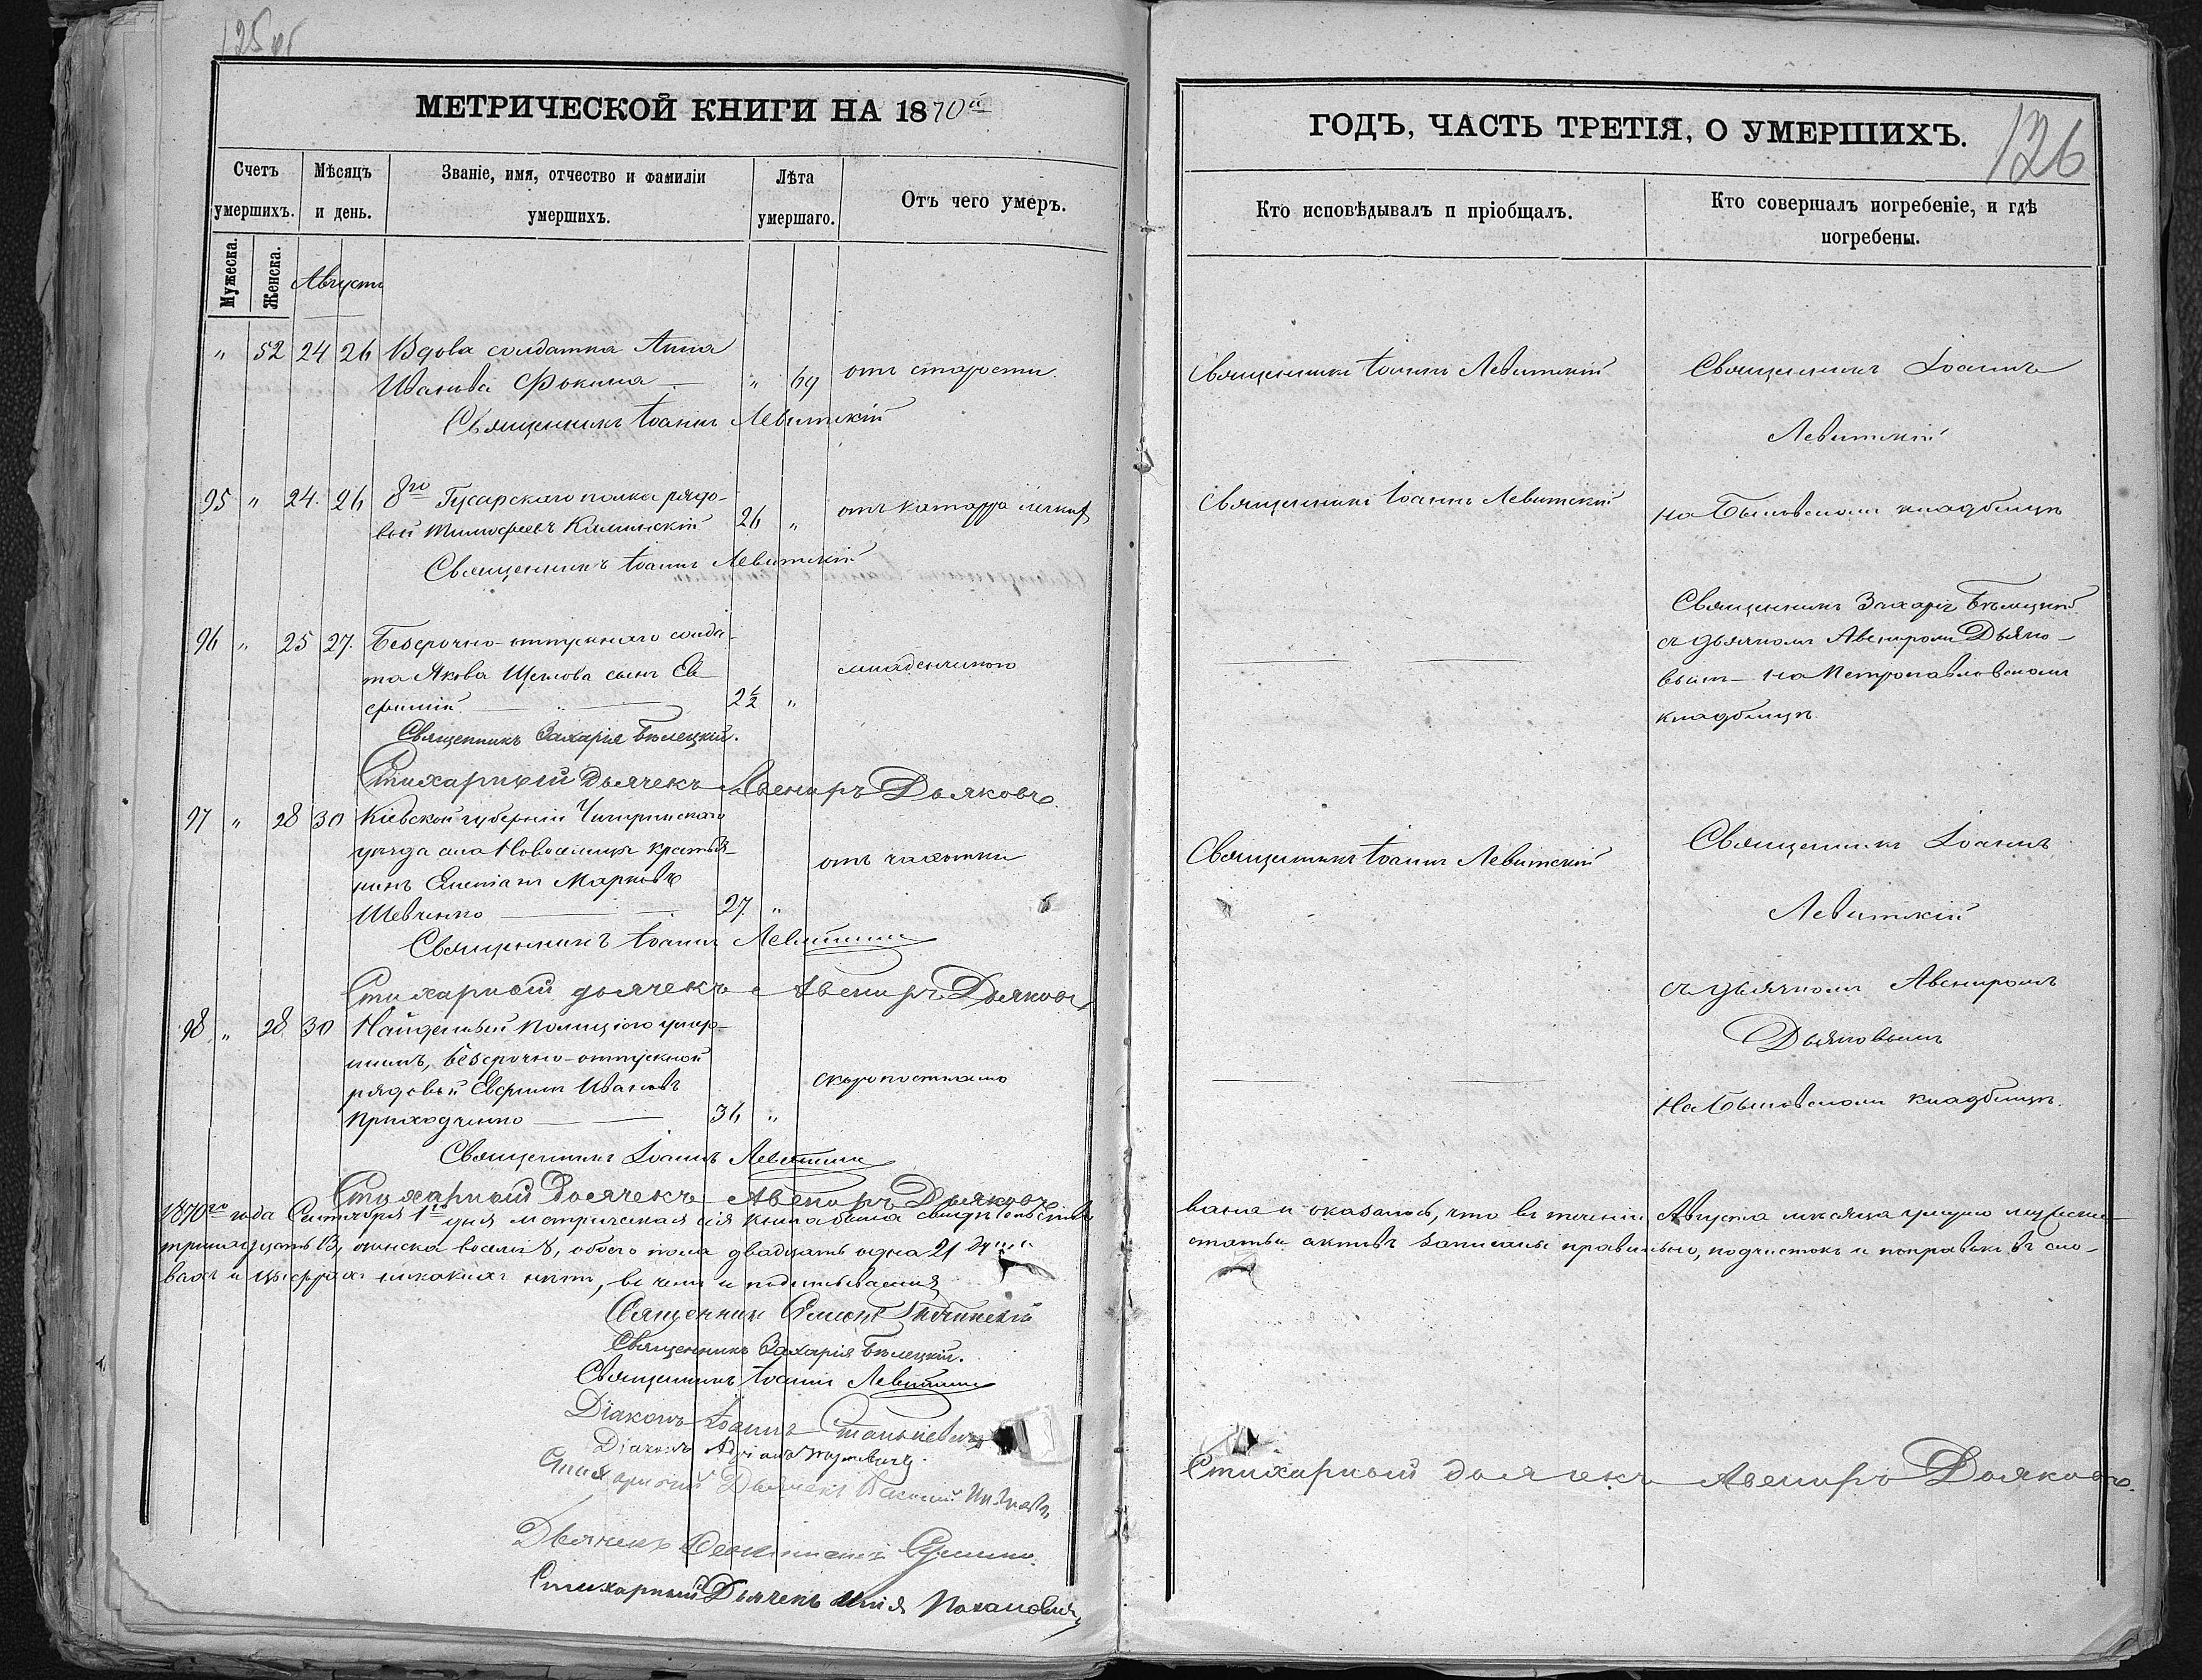 125 об
МЕТРИЧЕСКОЙ КНИГИ НА 1870й
Счетъ умершихъ.
Мужеска.
Женска.
Мѣсяцъ и день.
Званіе, имя, отчество и фамиліи умершихъ.
Лѣта умершаго.
Отъ чего умеръ.
Августъ
" 52 24 26 Вдова солдатка Анна
Иванова Фокина — " 69 отъ старости
Священникъ Іоаннъ Левитскій
95 " 24. 26 8го Гусарскаго полка рядо-
вой Тимофеевъ Калинскій 26 " отъ катарра
Священникъ Іоаннъ Левитскій
96 " 25 27. Безсрочно-отпускнаго солда-
та Якова Щеглова сынъ Ев
фимій 2½ " младенческою
Священникъ Захарія Бѣлецкій.
Стихарный Дьячекъ Авениръ Дьяковъ.
97 " 28 30 Кіевской губерніи Чигиринскаго
уѣзда села Новоселицы крестья-
нинъ Марковъ
Шевченко — 27. " отъ чахотки
Священникъ Іоаннъ Левитскій
Стихарный дьячекъ Авениръ Дьяковъ
98 " 28 30 Найденный Полиціею умер-
шимъ, безсрочно-отпускной
рядовый Евфимъ Ивановъ
Приходченко — 36 " скоропостижно
Священникъ Іоаннъ Левитскій
Стихарный Дьячекъ Авениръ Дьяковъ
1870го года Сентября 1го дня метрическая сія книга была свидѣтельство
тринадцать 13, женска восемь 8, обоего пола двадцать одна 21 душа
вахъ и цыфрахъ никакихъ нѣтъ, въ чемъ и подписываемся
Священникъ
Священникъ Захарія Бѣлецкій.
Священникъ Іоаннъ Левитскій
Діаконъ Іоаннъ Станкевичъ
Діаконъ
Стихарный Дьячекъ
Дьячекъ
Стихарный Дьячекъ Илія
ГОДЪ, ЧАСТЬ ТРЕТІЯ, О УМЕРШИХЪ.
126
Кто исповѣдывалъ и пріобщалъ.
Кто совершалъ погребеніе, и гдѣ погребены.
Священникъ Іоаннъ Левитскій
Священникъ Іоаннъ
Левитскій
Священникъ Іоаннъ Левитскій
на Быковскомъ кладбищѣ
Священникъ Захарія Бѣлецкій
съ дьячкомъ Авениромъ Дьяко-
вымъ — на Петропавловскомъ
кладбищѣ.
Священникъ Іоаннъ Левитскій
Священникъ Іоаннъ
Левитскій
съ дьячкомъ Авениромъ
Дьяковымъ
На Быковскомъ кладбищѣ.
вана и оказалось, что въ теченіи Августа мѣсяца умерло мужеска
статьи актовъ записаны правильно, подчистокъ и поправокъ въ сло-
Стихарный дьячекъ Авениръ Дьяковъ.